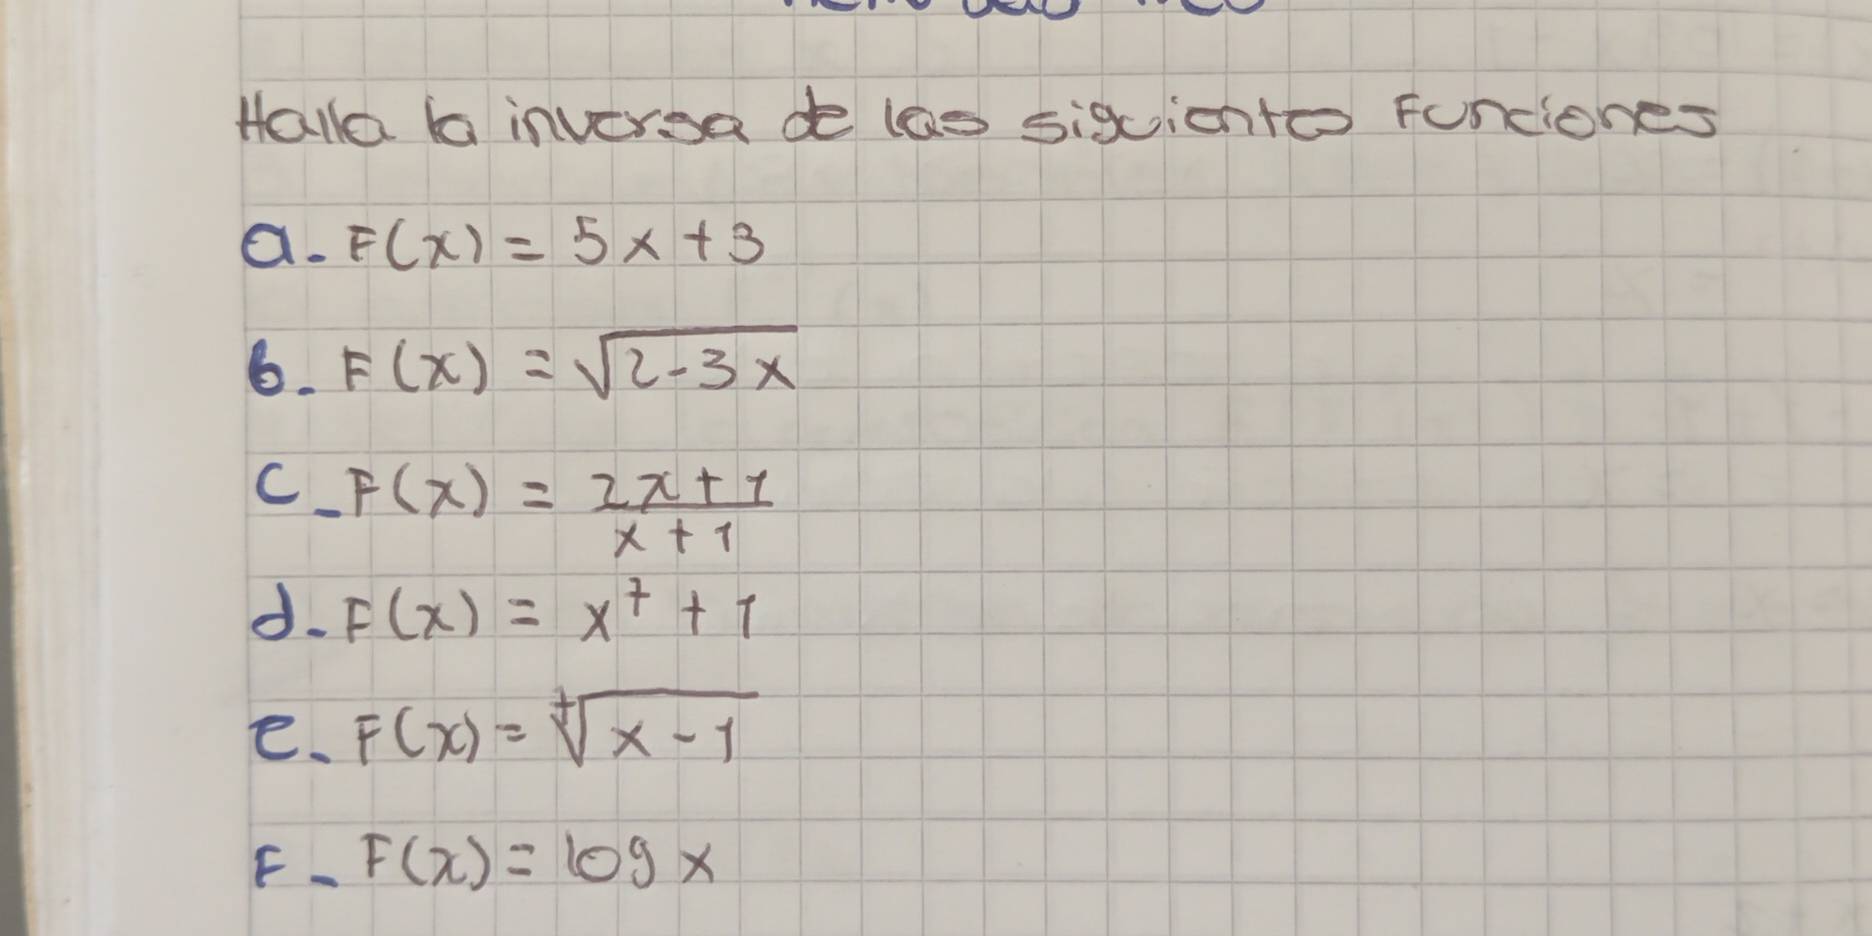 Halla la inversa de las siguientes Funciones
a. F(x) = 5x + 3
b. F(x) = √(2-3x)
c_ F(x) = (2x+1)/(x+1)
d. F(x) = x⁷ + 1
e. F(x) = ⁷√(x-1)
F_ F(x) = log x